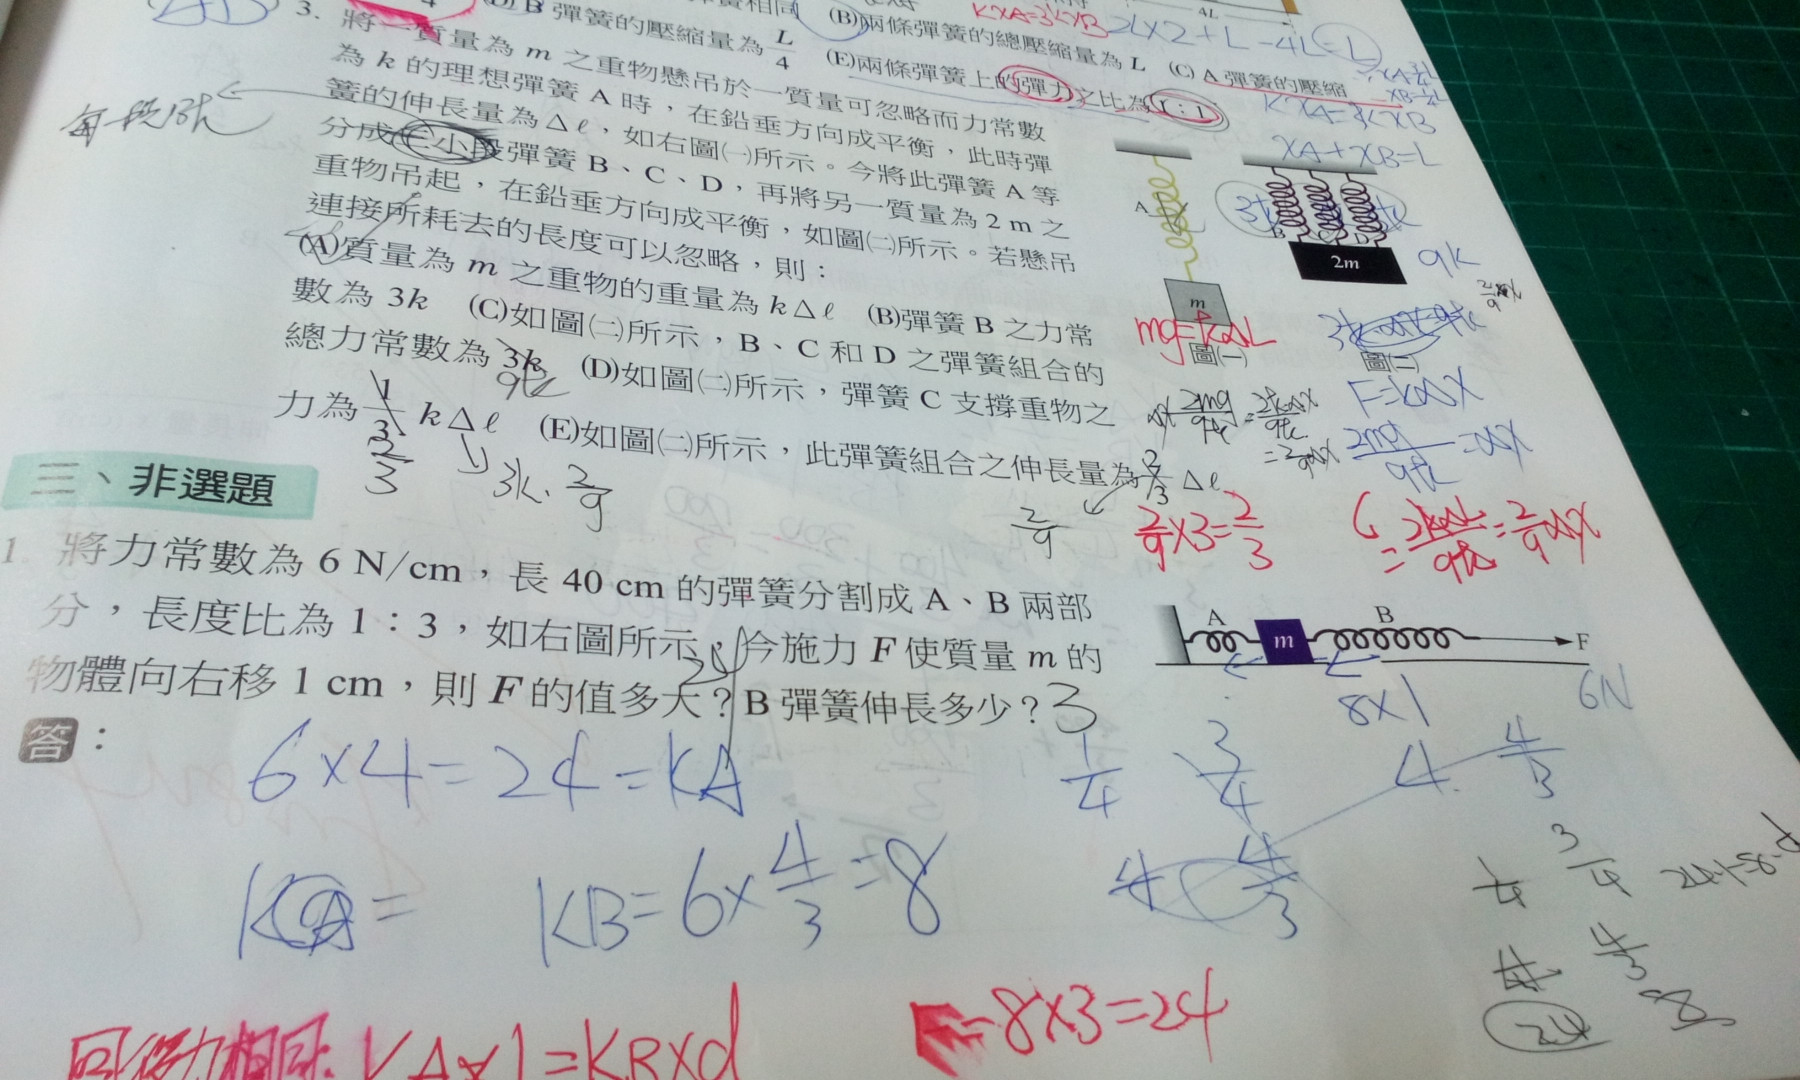 (D) B 彈簧的壓縮量為 L/4 (E)兩條彈簧上的彈力之比為 1:1
(B)兩條彈簧的總壓縮量為 L (C) A 彈簧的壓縮
KXA=3KXB 2L×2+L-4L=L
4L
3. 將一質量為 m 之重物懸吊於一質量可忽略而力常數
為 k 的理想彈簧 A 時,在鉛垂方向成平衡,此時彈
簧的伸長量為 Δℓ,如右圖㈠所示。今將此彈簧 A 等
分成三小段彈簧 B、C、D,再將另一質量為 2 m 之
重物吊起,在鉛垂方向成平衡,如圖㈡所示。若懸吊
連接所耗去的長度可以忽略,則:
(A)質量為 m 之重物的重量為 kΔℓ (B)彈簧 B 之力常
數為 3k (C)如圖㈡所示,B、C 和 D 之彈簧組合的
總力常數為 3k (D)如圖㈡所示,彈簧 C 支撐重物之
9k
力為 1/3 kΔℓ (E)如圖㈡所示,此彈簧組合之伸長量為 2/3 Δℓ
2/3
3k. 2/9
2/9
每一段13k
KXA=3KXB
XA+XB=L
A
m
mg=kΔL
圖㈠
3k
B C D
2m
9k
圖㈡
F=kΔX
2mg/9k=ΔX
2/9×3=2/3
=2kΔL/9k=2/9ΔX
三、非選題
1. 將力常數為 6 N/cm,長 40 cm 的彈簧分割成 A、B 兩部
分,長度比為 1:3,如右圖所示,今施力 F 使質量 m 的
物體向右移 1 cm,則 F 的值多大?B 彈簧伸長多少?3
A m B F
8×1 6N
答:
6×4=24=KA
1/4 3/4 4 4/3
KA= KB=6×4/3=8
4 4/3
1/4 3/4 24·1=8·d
4/3 8
24
KA×1=KB×d
8×3=24